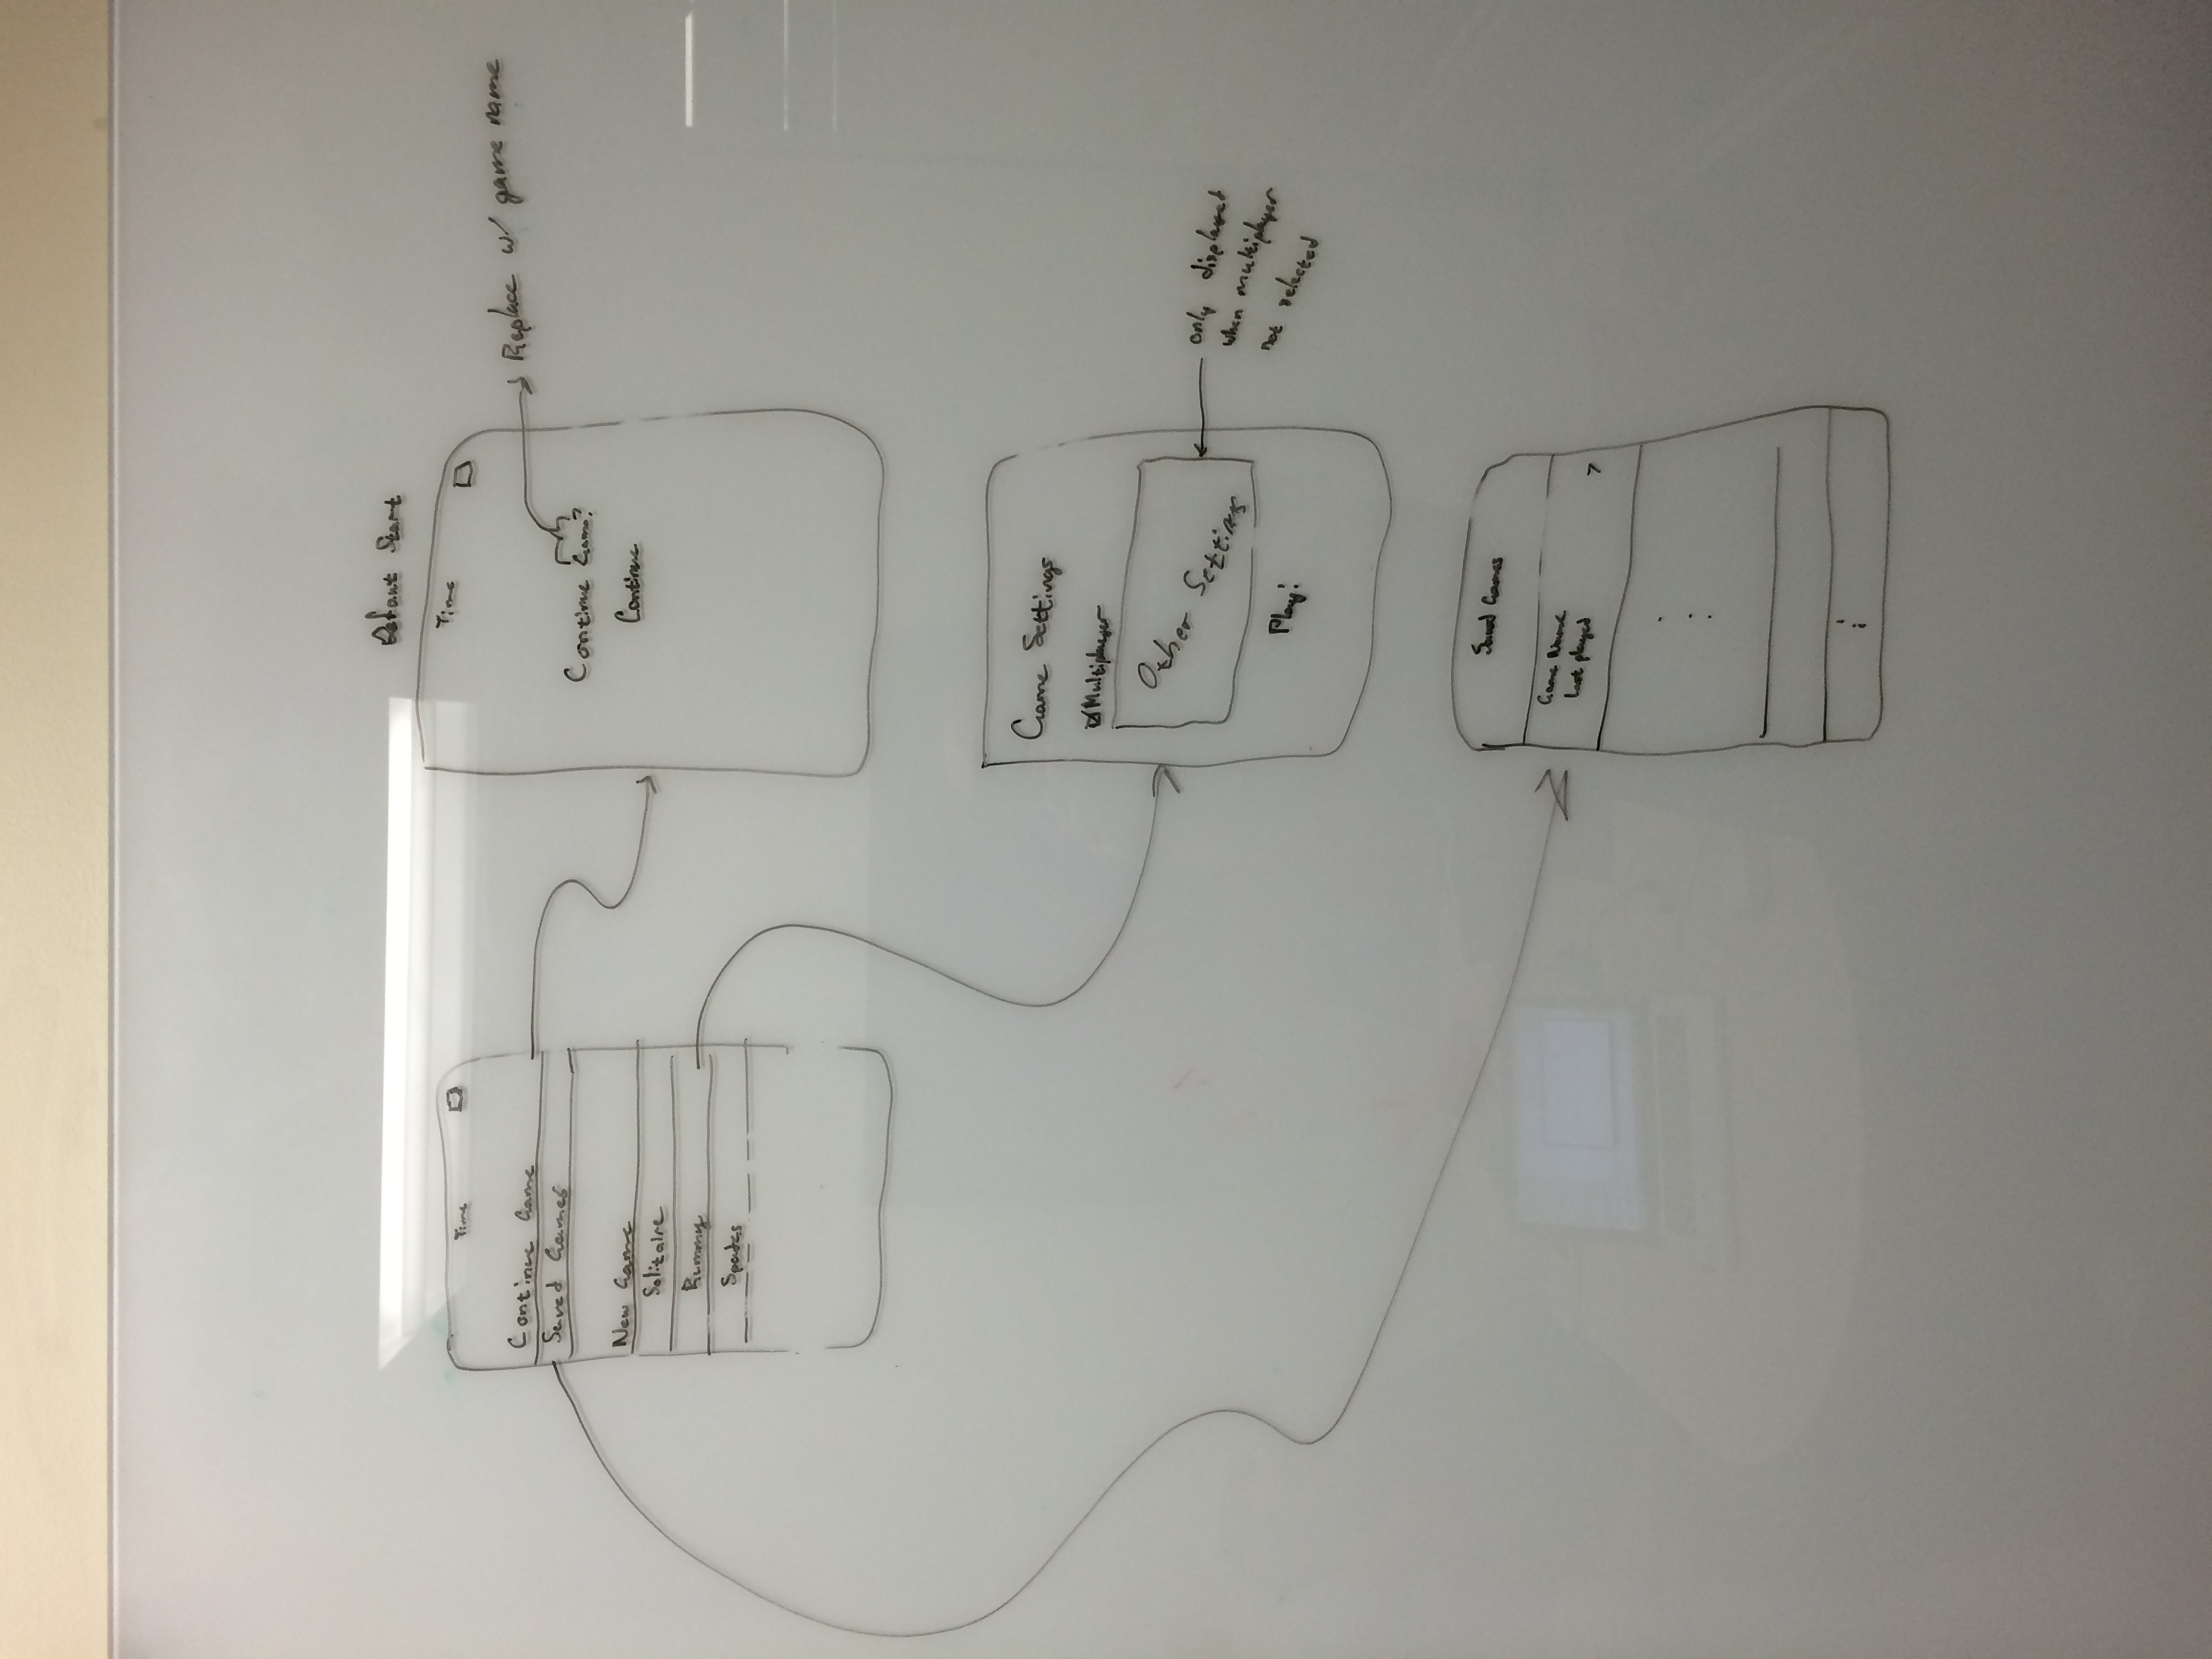 Time
Continue Game
Saved Games
New Game
Solitaire
Rummy
Spades
Defaut Start
Time
Continue Game?
Continue
Replace w/ game name
Game Settings
Multiplayer
Other Settings
Play!
only displayed
when multiplayer
not selected
Saved Games
Game Name
Last played
>